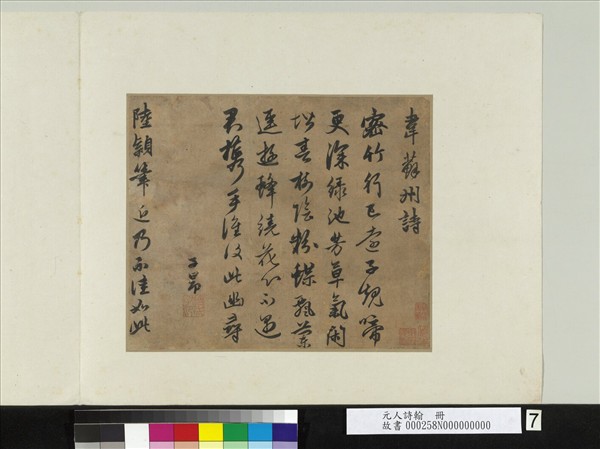 韋蘇州詩
密竹行已遠子規啼
更深綠池芳草氣閑
齋春樹陰粉蝶飄蘭
逕遊蜂繞花心不遇
君攜手誰復此幽尋
子昂
陸穎筆近乃不佳如此
元人詩翰 冊
故書 000258N000000000
7